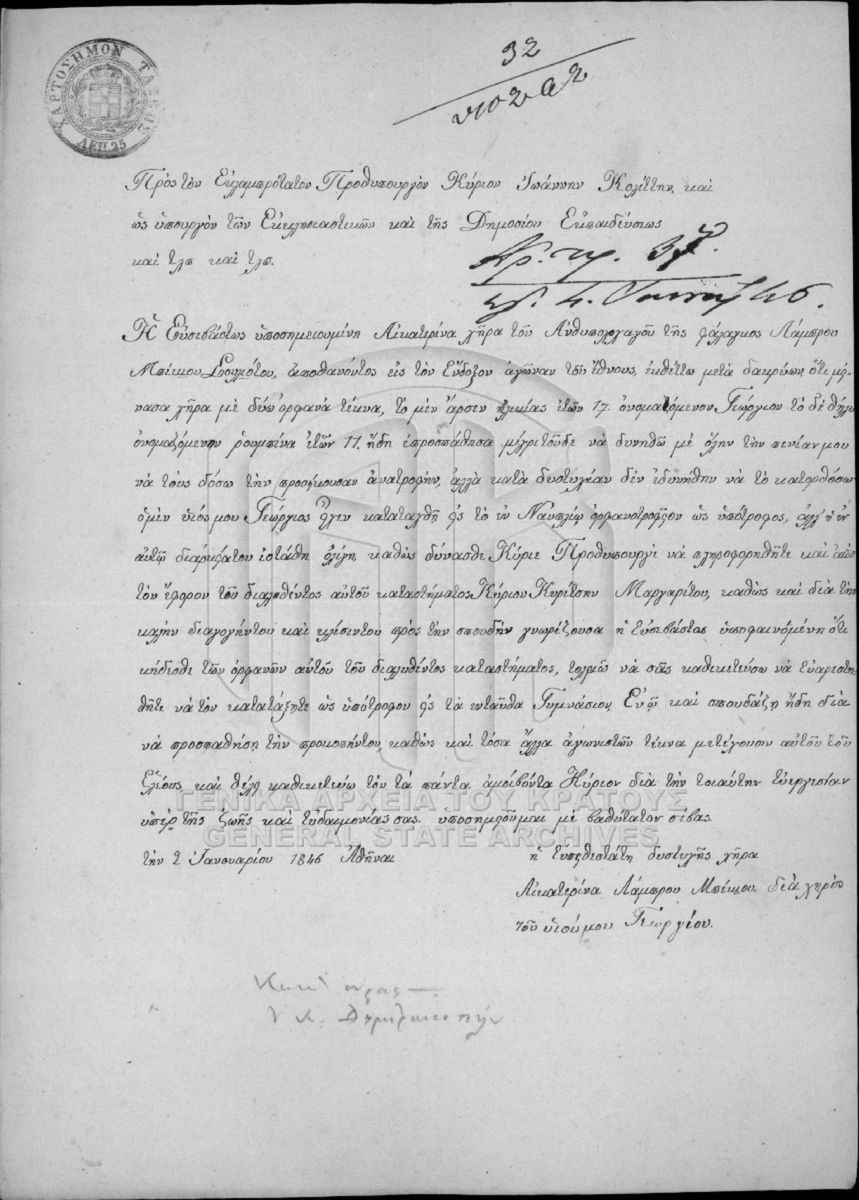 ΧΑΡΤΟΣΗΜΟΝ ΤΑΞΕΩΣ
ΛΕΠ. 25
32
Πρὸς τὸν Εὐλαμπρότατον Προθυπουργὸν Κύριον Ἰωάννην Κολέττην, καὶ
ὡς ὑπουργὸν τῶν Ἐκκλησιαστικῶν καὶ τῆς Δημοσίου Ἐκπαιδεύσεως
καὶ τλπ καὶ τλπ.
Ἡ Εὐσεβάστως ὑποσημειουμένη Αἰκατερίνα χῆρα τοῦ Ἀνθυπολοχαγοῦ τῆς φάλαγκος Λάμπρου
Μπέκιου Σουλιότου, ἀποθανόντος εἰς τὸν Ἔνδοξον ἀγῶναν τοῦ ἔθνους, ἐκθέττω μετὰ δακρύων, ὅτι μή-
νασα χῆρα μὲ δύω ὀρφανὰ τέκνα, τὸ μὲν ἄρσεν ἡλικίας ἐτῶν 17. ὀνομαζόμενον Γεώργιον τὸ δὲ θῆλυ
ὀνομαζόμενην ῥουμπίνα ἐτῶν 11. ἤδη ἐπροσπάθησα μέχρι τοῦδε νὰ δυνηθῶ μὲ ὅλην τὴν πενίαν μου
νὰ τοὺς δόσω τὴν προσήκουσαν ἀνατροφὴν, ἀλλὰ κατὰ δυστυχίαν δὲν ἰδυνήθην νὰ τὸ κατορθόσω
ὁ μὲν υἱός μου Γεώργιος εἶχεν καταταχθῆ εἰς τὸ ἐν Ναυπλίῳ ὀρφανοτροφεῖον ὡς ὑπότροφος, ἀλλ' ἡ ἐν
αὐτῷ διαρκεία του ἐστάθη ὀλίγη, καθὼς δύνασθε Κύριε Προθυπουργὲ νὰ πληροφορηθῆτε καὶ ἀπὸ
τὸν ἔφορον τοῦ διαλυθέντος αὐτοῦ καταστήματος Κύριον Κυρίτσην Μαργαρίτου, καθὼς καὶ διὰ τὴν
καλὴν διαγογήντου καὶ κλίσιντου πρὸς τὴν σπουδὴν γνωρίζουσα ἡ Εὐσεβάστως ὑποφαινομένη ὅτι
κήδεσθε τῶν ὀρφανῶν αὐτοῦ τοῦ διαλυθέντος καταστήματος, τολμῶ νὰ σᾶς καθικετεύσω νὰ εὐαρεστη-
θῆτε νὰ τὸν κατατάξητε ὡς ὑπότροφον εἰς τὰ ἐνταῦθα Γυμνάσιον, Ἐν ᾧ καὶ σπουδάζῃ ἤδη διὰ
νὰ προσπαθήσῃ τὴν προκοπήντου, καθὼς καὶ τόσα ἄλλα ἀγωνιστῶν τέκνα μετέχουσιν αὐτοῦ τοῦ
Ἐλέους, καὶ θέλει καθικετεύω τὸν τὰ πάντα ἀμοίβοντα Κύριον διὰ τὴν τοιαύτην εὐεργεσίαν
ὑπὲρ τῆς ζωῆς καὶ εὐδαιμονίας σας. ὑποσημειοῦμαι μὲ βαθύτατον σέβας.
ΓΕΝΙΚΑ ΑΡΧΕΙΑ ΤΟΥ ΚΡΑΤΟΥΣ
GENERAL STATE ARCHIVES
τὴν 2 Ἰανουαρίου 1846 Ἀθῆναι
ἡ εὐπειθεστάτη δυστυχὴς χήρα
Αἰκατερίνα Λάμπρου Μπέκιου διὰ χειρὸς
τοῦ υἱοῦ μου Γεωργίου.